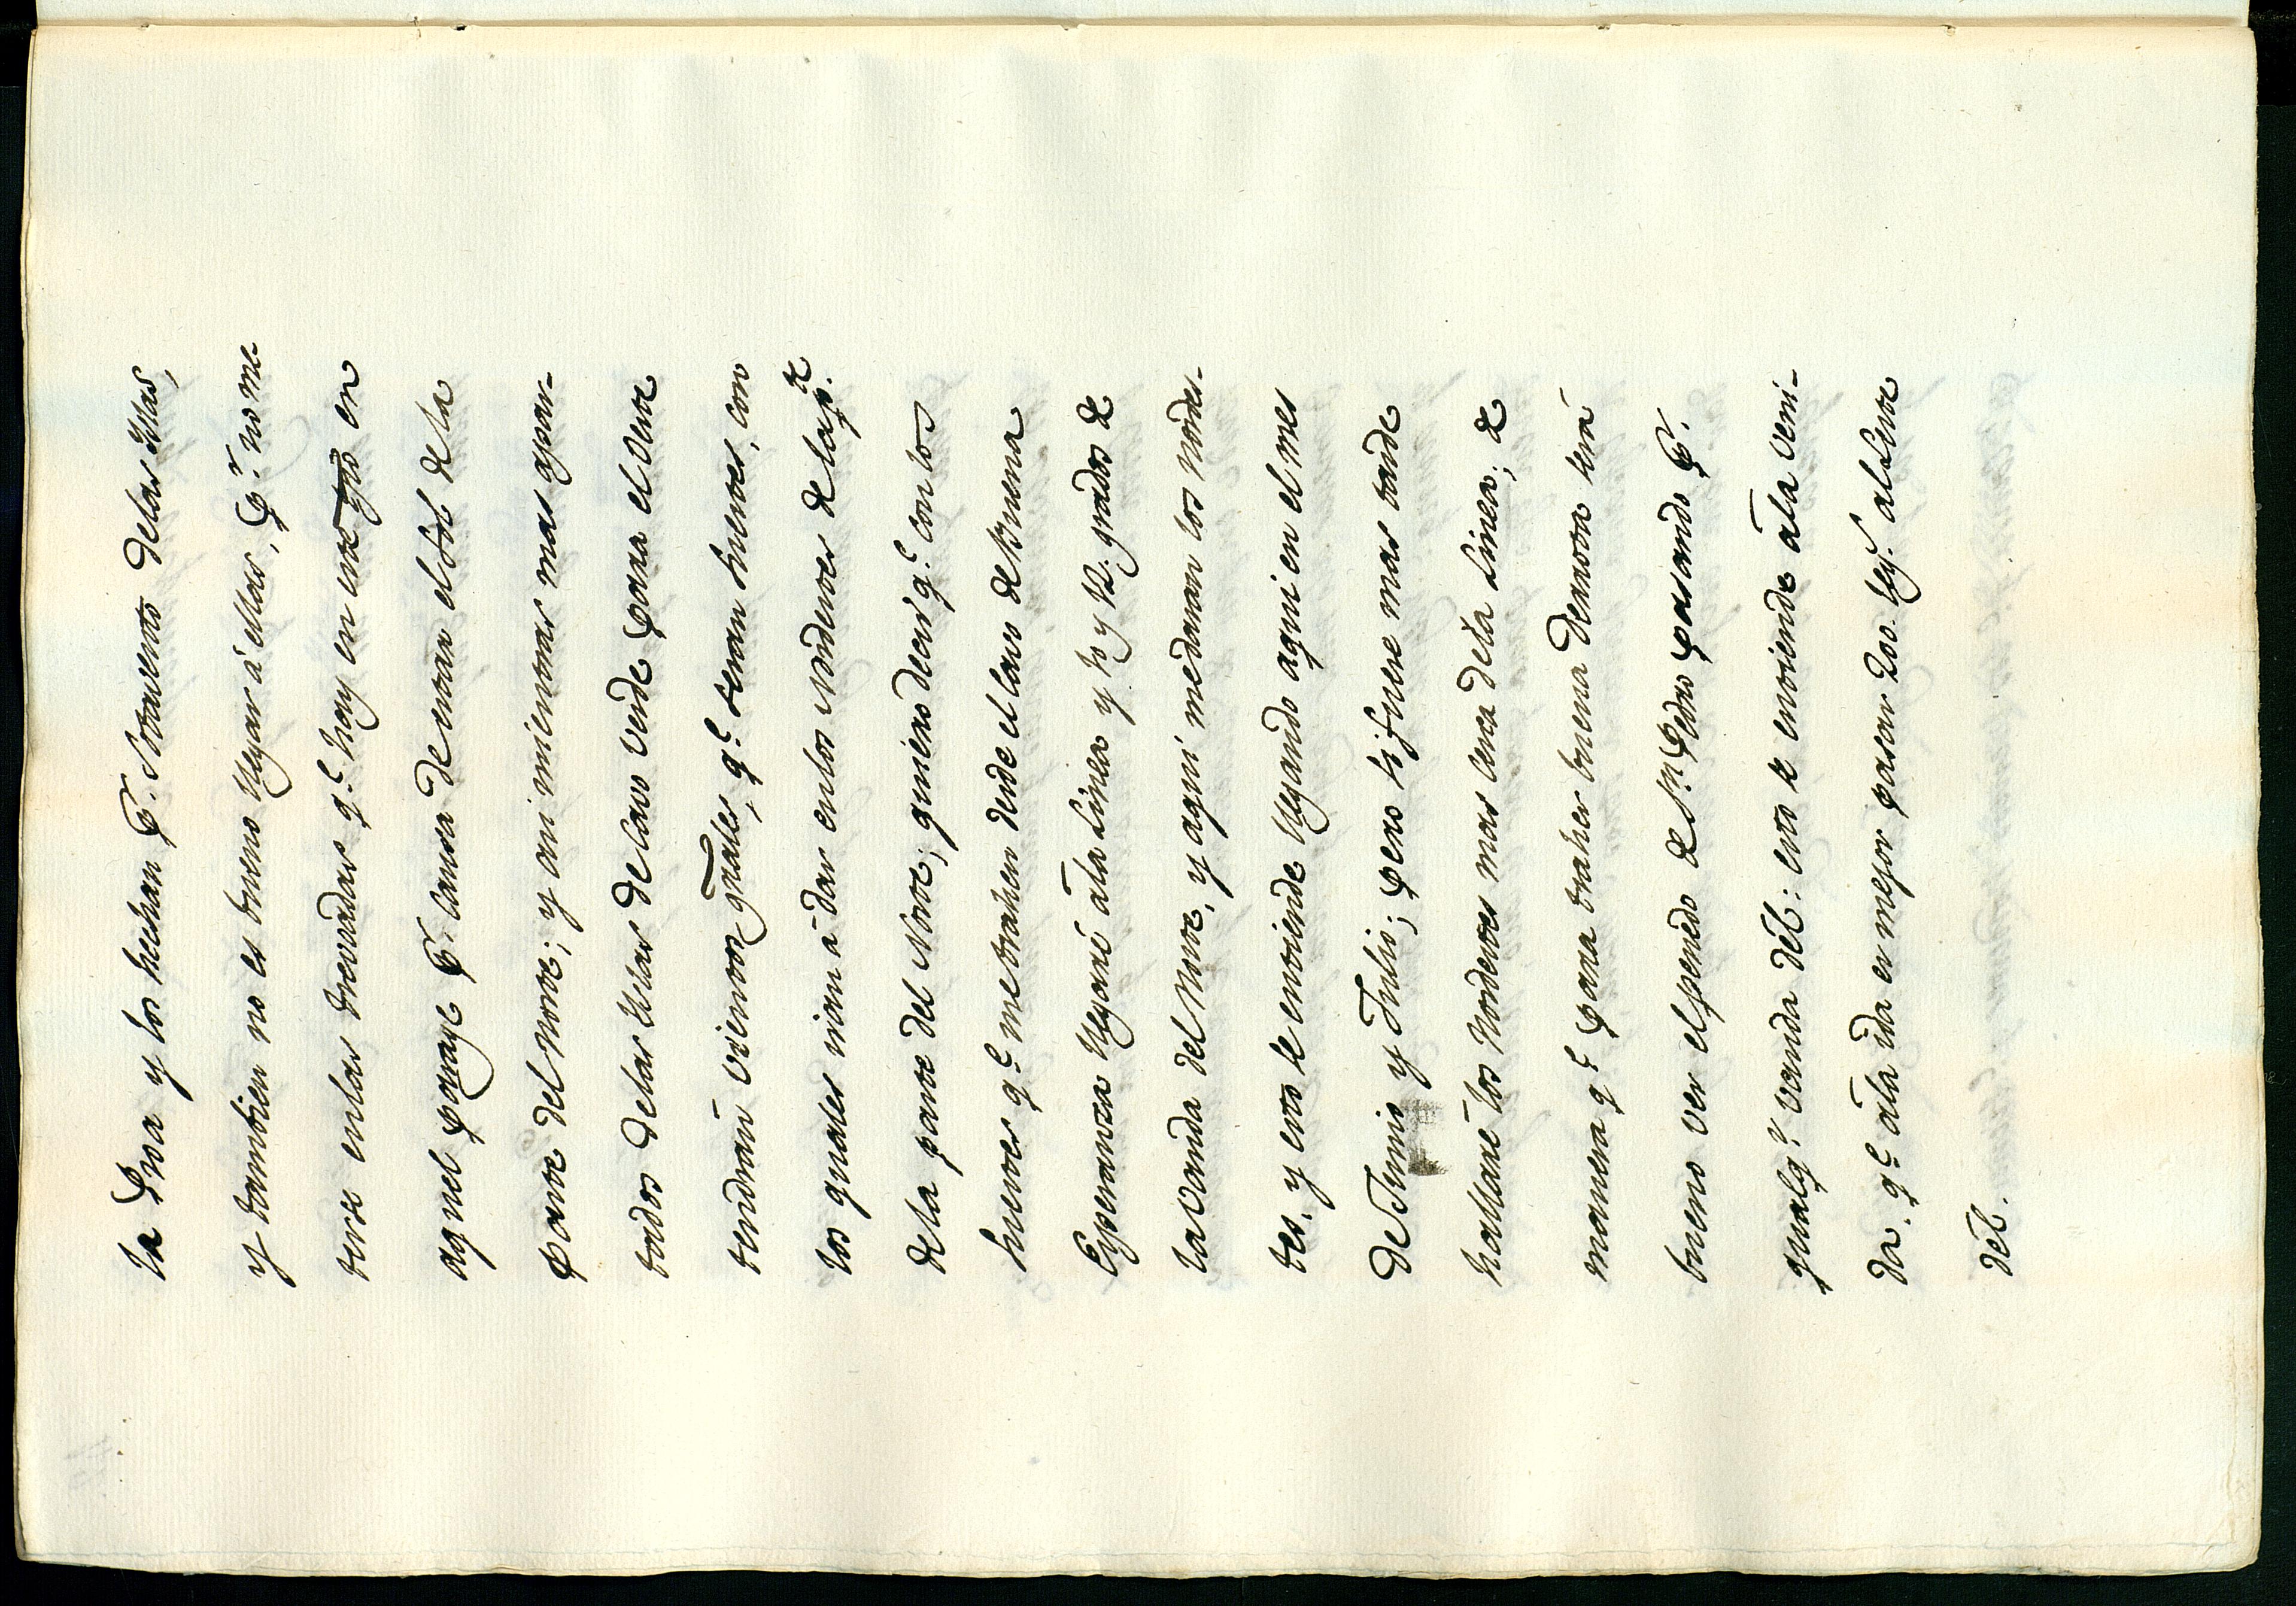 la Proa y los hechan pr. Sotavento delas Yslas,
y tambien no es bueno llegar à ellas, pr. no me-
terse enlas trevadas q.e hay en este tpo en
aquel parage pr. causa de estar el Sol de la
parte del Norte; y asi mientras mas apar-
tados delas Yslas de Cavo verde para el Oeste
tendran vientos grales, q.e seran Suestes, con
los quales iran â dar enlos Nordestes de la p.te
dela parte del Norte; quiero decir q.e con los
Suestes q.e me trahen desde el Cavo de Buena
Esperanza llegaré âla Linea y 10 y 12. grados de
la vanda del Norte, y aqui me daran los Nordes-
tes, y esto se entiende llegando aqui en el mes
de Junio y Julio; pero si fuere mas tarde
hallaré los Nordestes mas cerca dela Linea; de
manera q.e para traher buena derrota será
bueno ver el penedo de S.n Pedro pasando pr.
qualq.r vanda dél: esto se entiende âla veni-
da, q.e âla ida es mejor pasar 200. leg.s al Leste
dél.